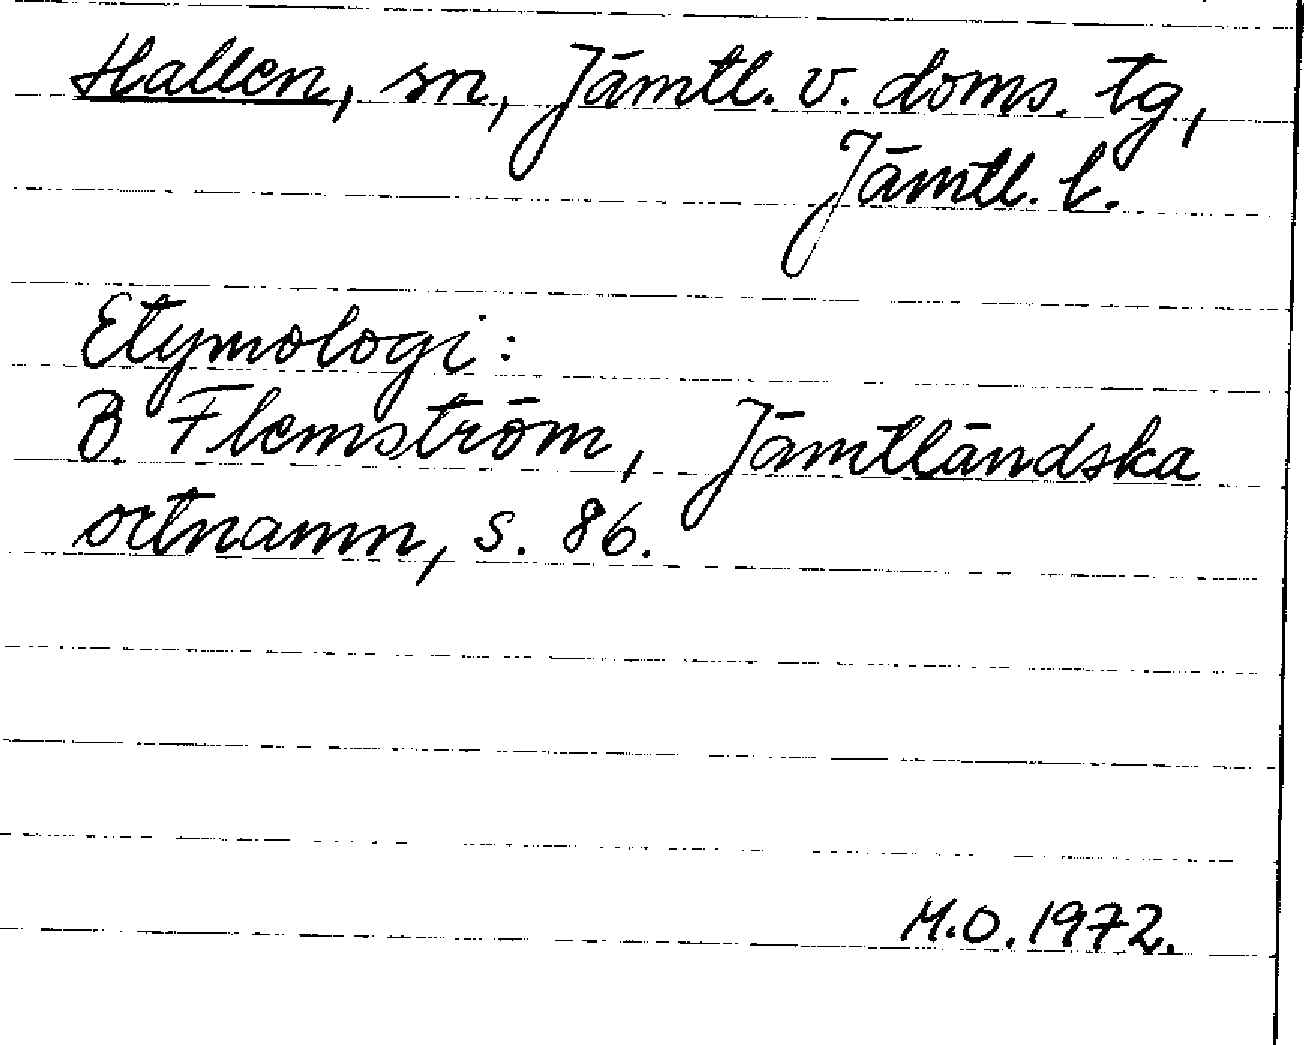 Hallen, sn, Jämtl. v. doms. tg,
Jämtl. l.
Etymologi:
B. Flemström, Jämtländska
ortnamn, s. 86.
M.O. 1972.